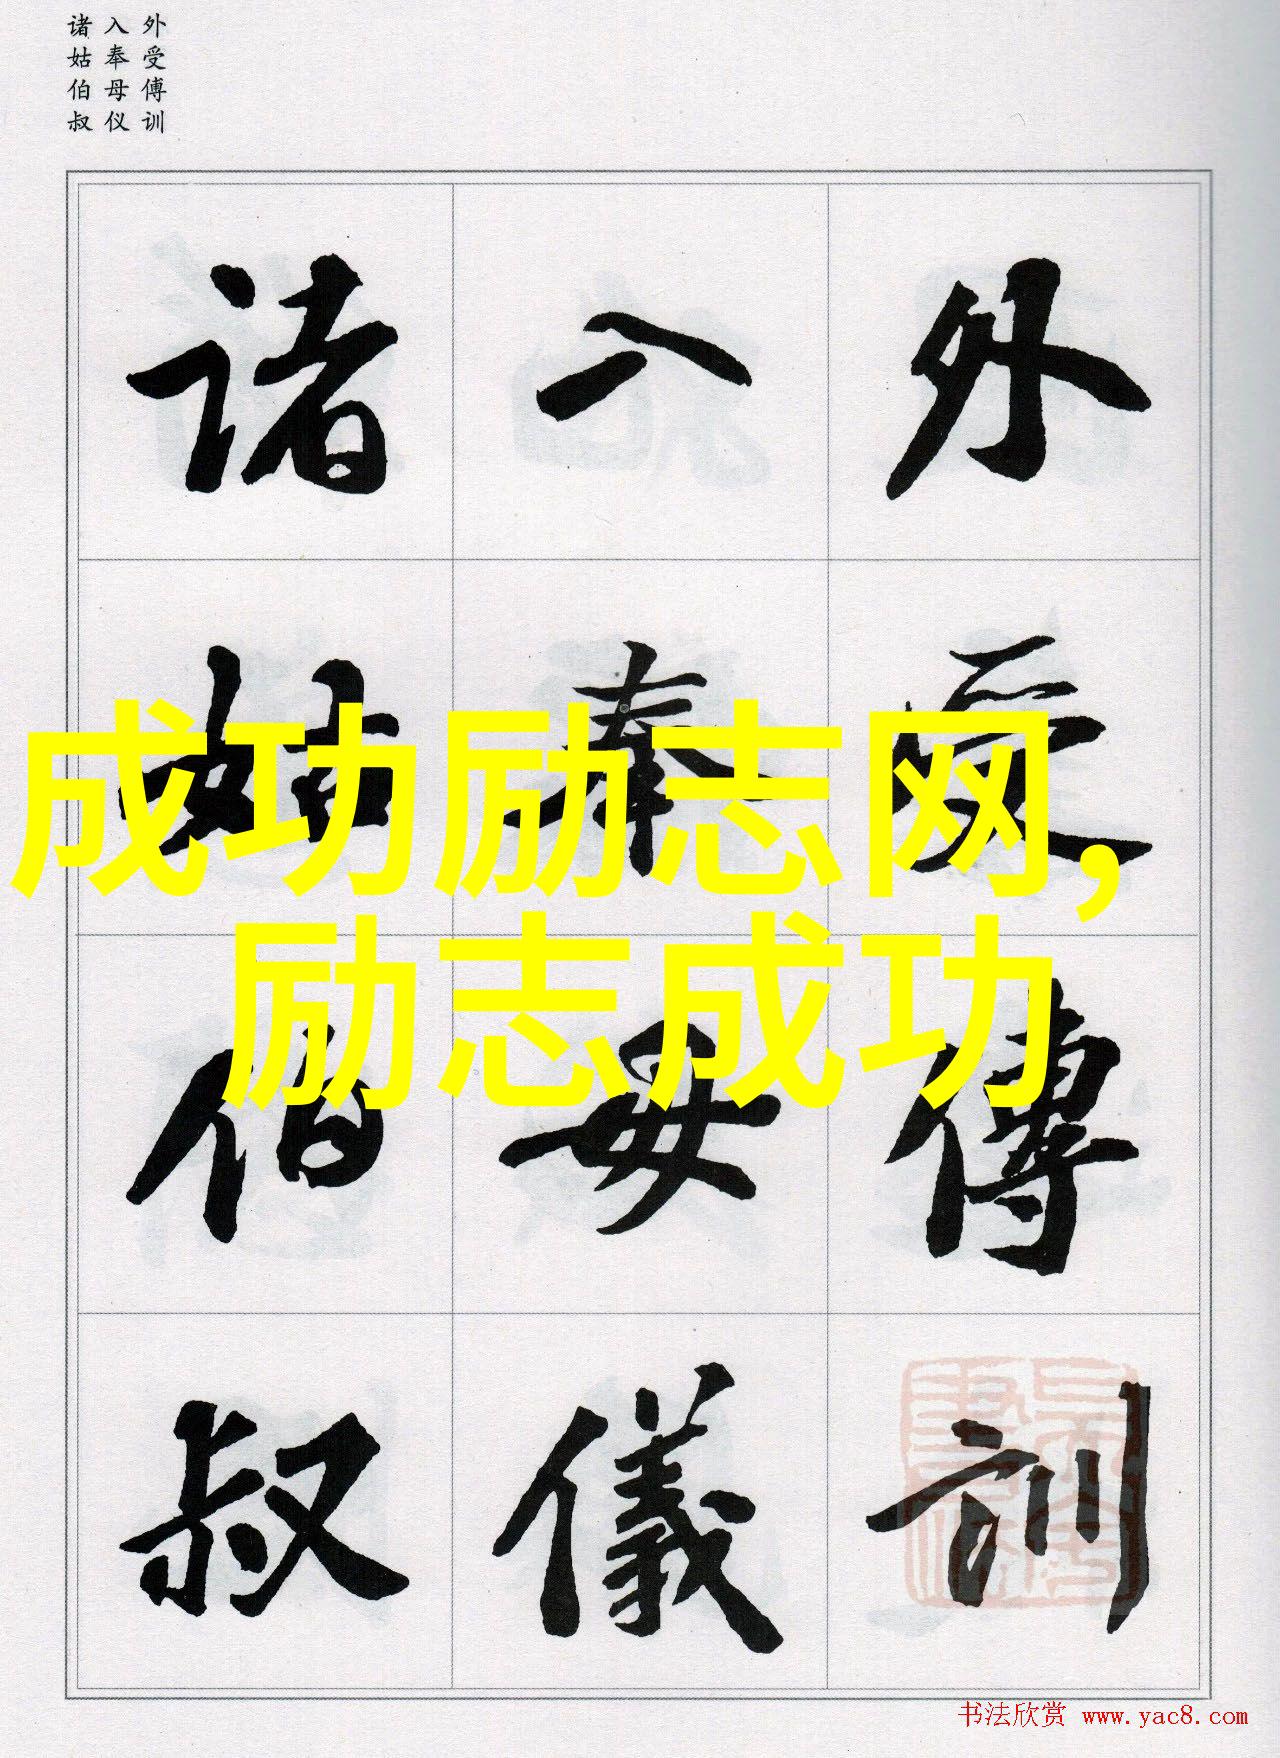 外受傅训
入奉母仪
诸姑伯叔
外受傅訓
入奉母儀
诸姑伯叔
成功励志网,
励志成功
书法欣赏 www.yac8.com